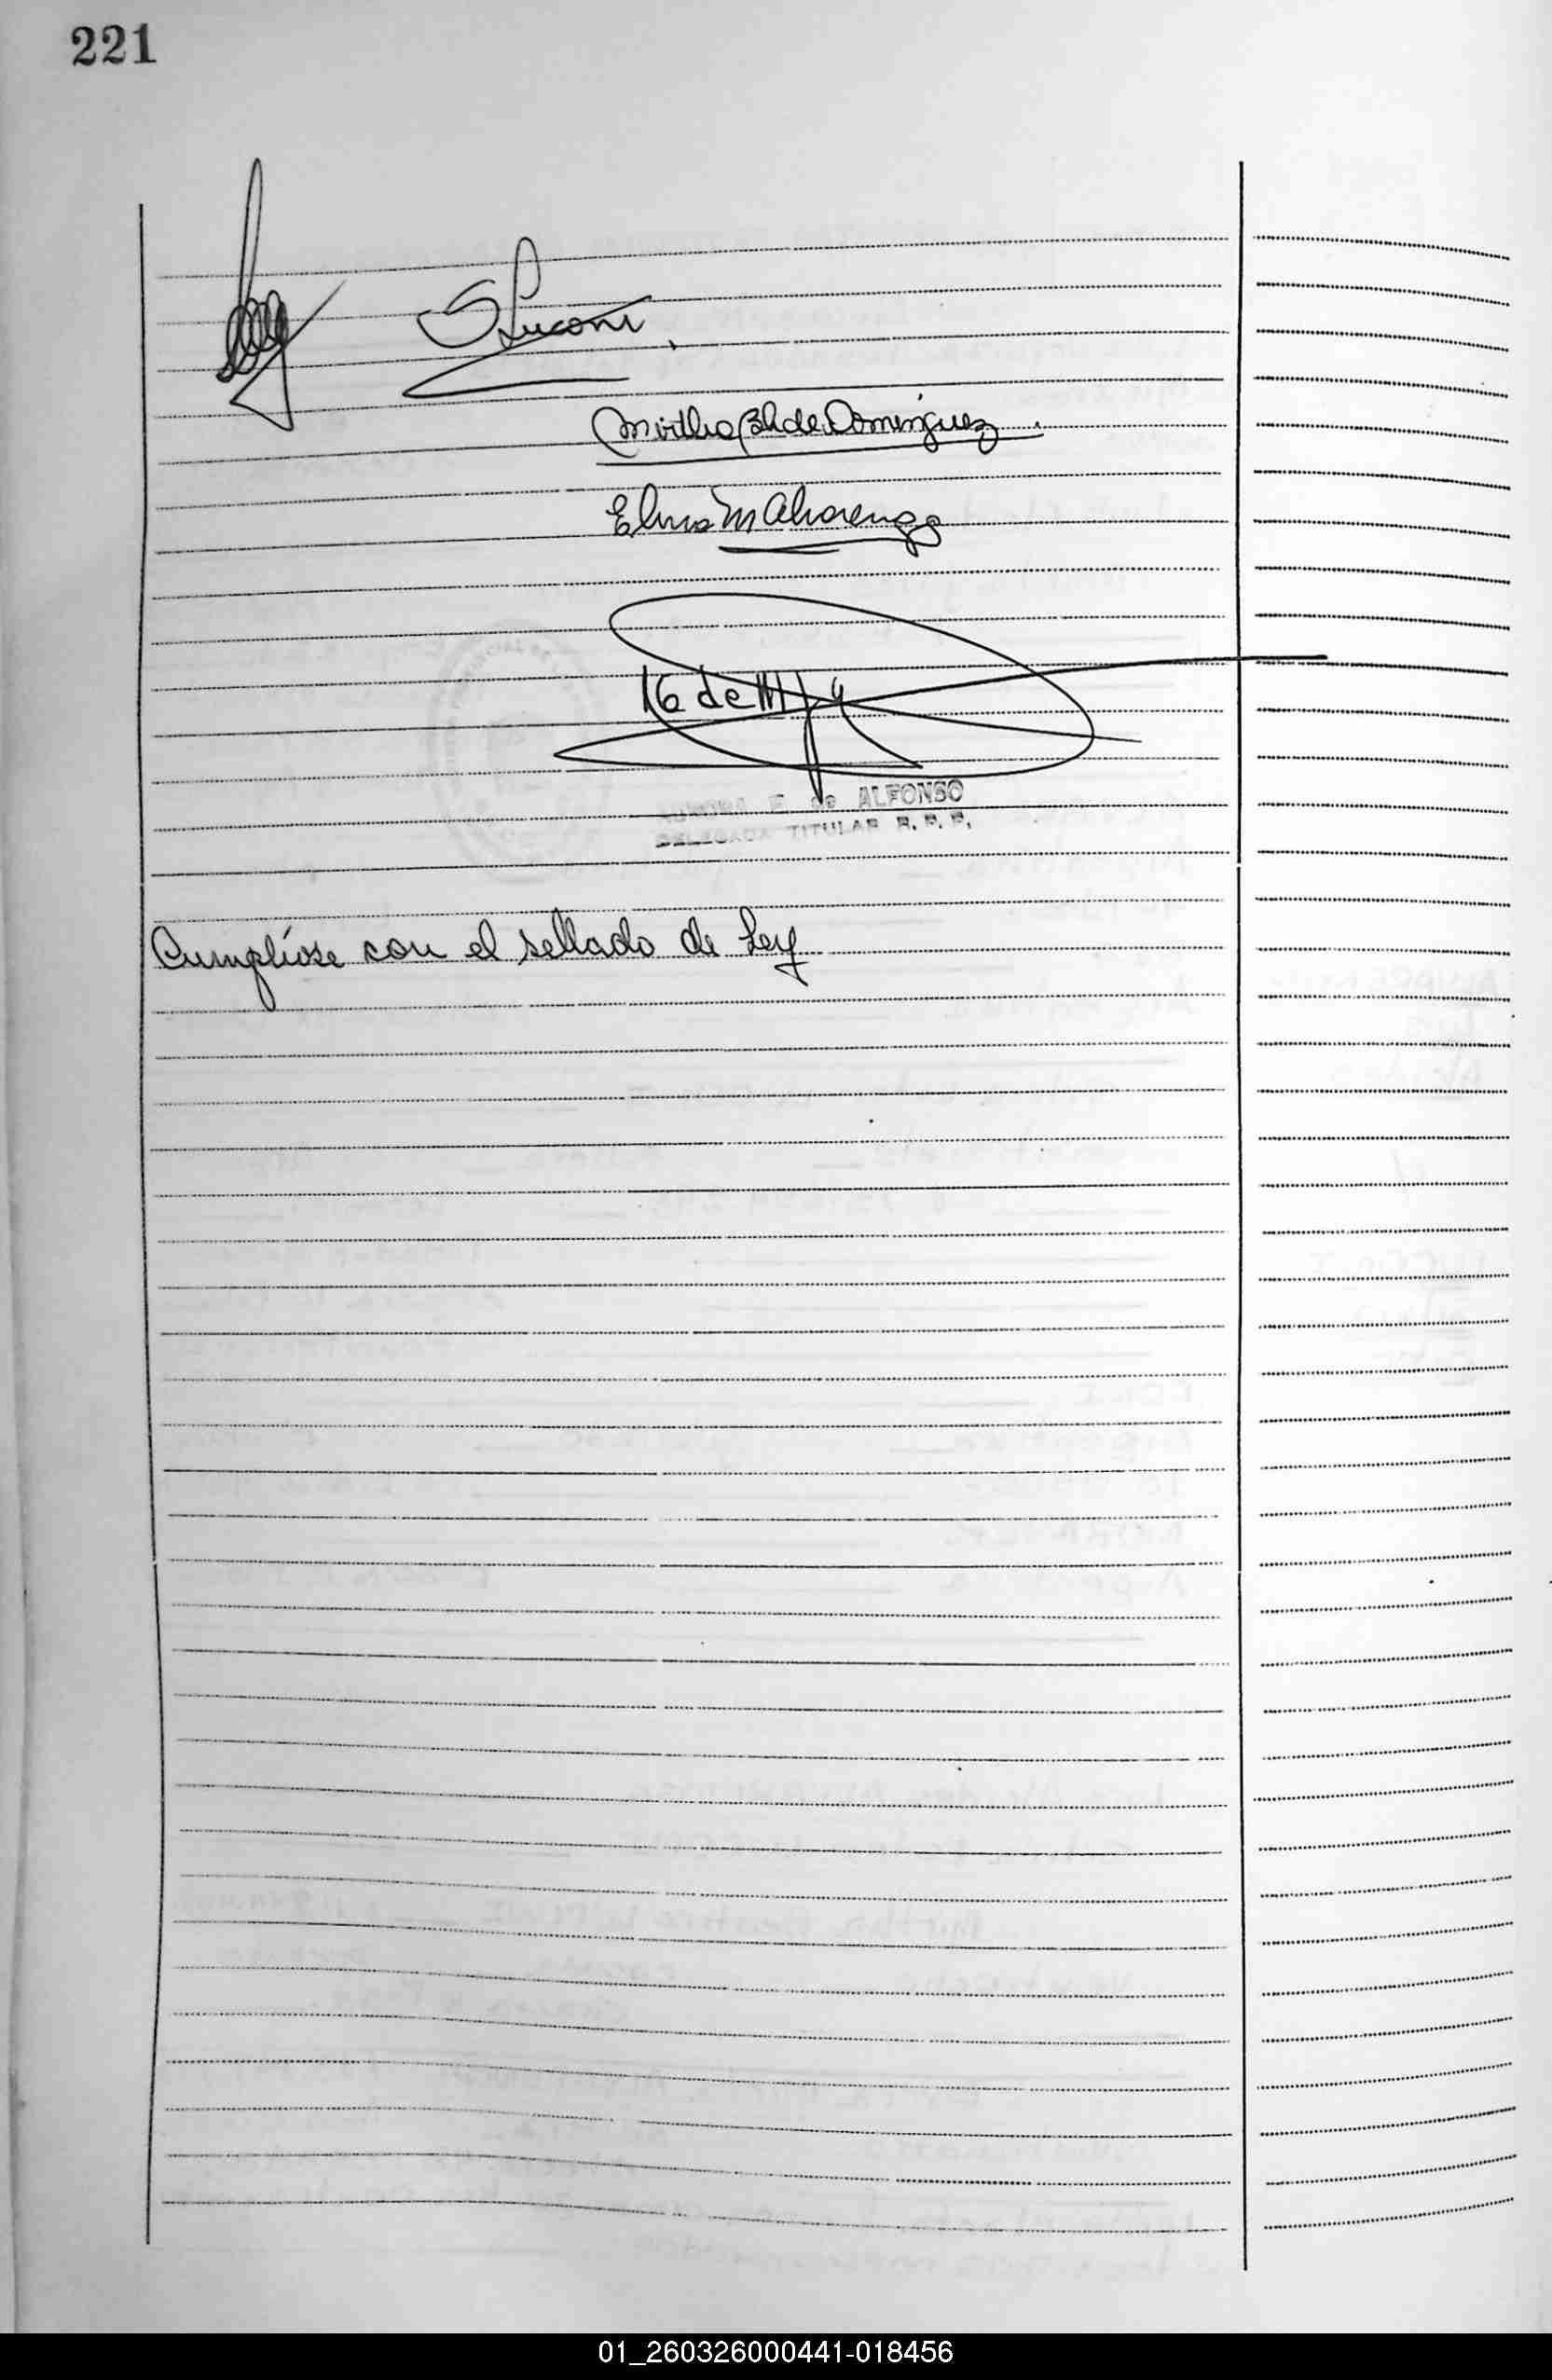 221
S Luconi
Mirtha B L de Dominguez
Elma M Alvarenga
16 de III
E de ALFONSO
DELEGADA TITULAR R. P. P.
Cumplióse con el sellado de Ley
01_260326000441-018456